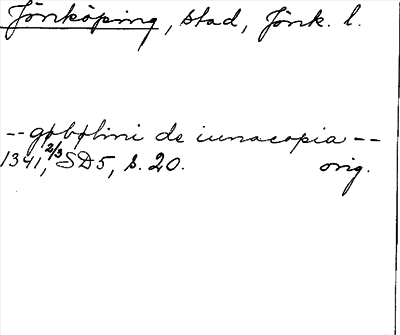 Jönköping, stad, Jönk. l.
-- gobolini de iunacopia --
1341, 2/3 SD5, s. 20. orig.